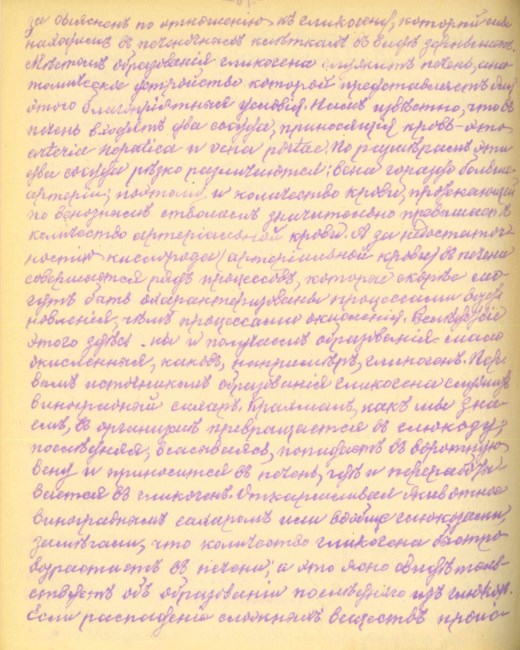 за выяснен по отношенію къ гликогену, который мы
находимъ въ печеночныхъ клѣткахъ въ видѣ зернышекъ.
Мѣстомъ образованія гликогена служитъ печень, ана-
томическое устройство которой представляетъ для
этого благопріятныя условія. Намъ извѣстно, что въ
печень входятъ два сосуда, приносящія кровь – это
arteria hepatica и vena portae. По размѣрамъ эти
два сосуда рѣзко различаются: вена гораздо больше
артеріи; поэтому и количество крови, протекающей
по венознымъ стволамъ значительно превышаетъ
количество артеріальной крови. А за недостаточ-
ностью кислорода (артеріальной крови) въ печени
совершается рядъ процессовъ, которые скорѣе мо-
гутъ быть охарактеризованы процессами возста-
новленія, чѣмъ процессами окисленія. Вслѣдствіе
этого здѣсь мы и получаемъ образованіе мало
окисленныхъ, каковъ, напримѣръ, гликогенъ. Пер-
вымъ источникомъ образованія гликогена служитъ
виноградный сахаръ. Крахмалъ, какъ мы зна-
емъ, въ организмѣ превращается въ глюкозу;
послѣдняя, всасываясь, попадаетъ въ воротную
вену и приносится въ печень, гдѣ и перерабаты-
вается въ гликогенъ. Откармливая животное
винограднымъ сахаромъ или вообще глюкозами,
замѣчали, что количество гликогена быстро
возрастаетъ въ печени; а это ясно свидѣтель-
ствуетъ объ образованіи послѣдняго изъ глюкозъ.
Если распаденіе сложныхъ веществъ проис-